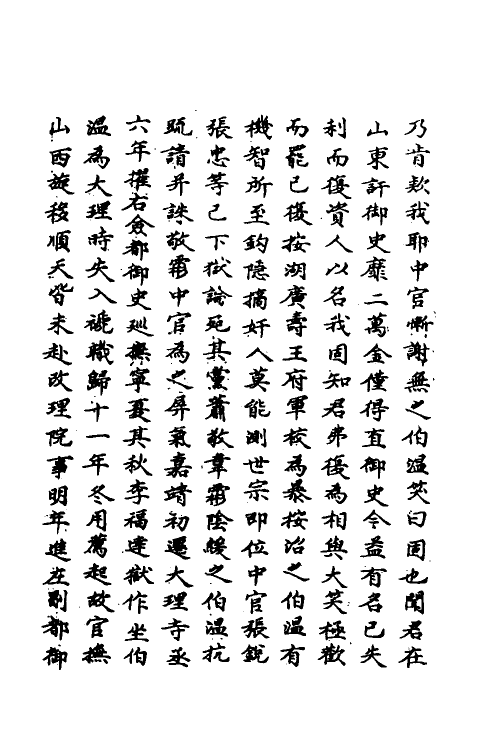 乃肯款我耶中官慚謝無之伯溫笑曰固也聞君在
山東訐御史靡二萬金僅得直御史令益有名已失
利而復資人以名我固知君弗復為相與大笑極歡
而罷已復按湖廣壽王府軍校為暴按治之伯溫有
機智所至鈎隱摘奸人莫能測世宗即位中官張銳
張忠等已下獄論死其黨蕭敬韋霦陰緩之伯溫抗
疏請并誅敬霦中官為之屏氣嘉靖初遷大理寺丞
六年擢右僉都御史巡撫寧夏其秋李福達獄作坐伯
溫為大理時失入褫職歸十一年冬用薦起故官撫
山西旋移順天皆未赴改理院事明年進左副都御